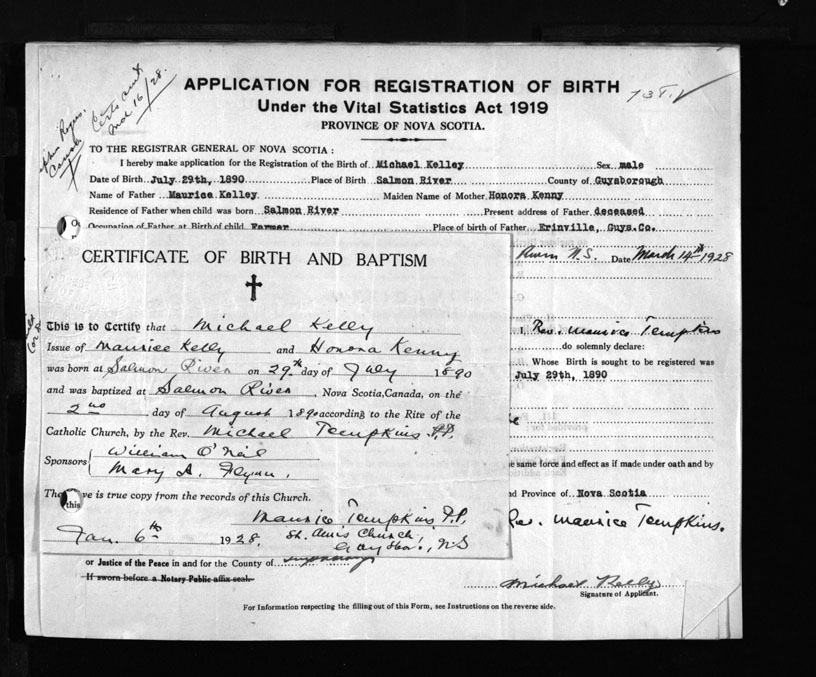 APPLICATION FOR REGISTRATION OF BIRTH
Under the Vital Statistics Act 1919
PROVINCE OF NOVA SCOTIA.
TO THE REGISTRAR GENERAL OF NOVA SCOTIA :
I hereby make application for the Registration of the Birth of Michael Kelley Sex male
Date of Birth July 29th, 1890 Place of Birth Salmon River County of Guysborough
Name of Father Maurice Kelley Maiden Name of Mother Honora Kenny
Residence of Father when child was born Salmon River Present address of Father deceased
Occupation of Father at Birth of child Farmer Place of birth of Father Erinville, Guys.Co.
N.S. Date March 14th 1928
CERTIFICATE OF BIRTH AND BAPTISM
This is to Certify that Michael Kelly
Issue of Maurice Kelly and Honora Kenny
was born at Salmon River on 29th day of July 1890
and was baptized at Salmon River, Nova Scotia, Canada, on the
2nd day of August 1890 according to the Rite of the
Catholic Church, by the Rev. Michael Tompkins P.P.
Sponsors William O'Neil
Mary A. Flynn.
The ve is true copy from the records of this Church.
this
Maurice Tompkins P.P.
Jan. 6th 1928. St. Anns Church,
Guysboro., N.S
I, Rev. Maurice Tompkins
do solemnly declare:
Whose Birth is sought to be registered was
July 29th, 1890
same force and effect as if made under oath and by
Province of Nova Scotia
Rev. Maurice Tompkins.
or Justice of the Peace in and for the County of
If sworn before a Notary Public affix seal.
Michael Kelly
Signature of Applicant.
For Information respecting the filling out of this Form, see Instructions on the reverse side.